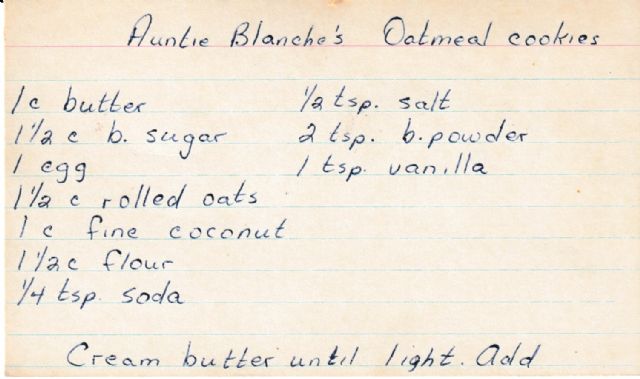 Auntie Blanche's Oatmeal cookies
1 c butter
1½ c b. sugar
1 egg
1½ c rolled oats
1 c fine coconut
1½ c flour
¼ tsp. soda
½ tsp. salt
2 tsp. b. powder
1 tsp. vanilla
Cream butter until light. Add